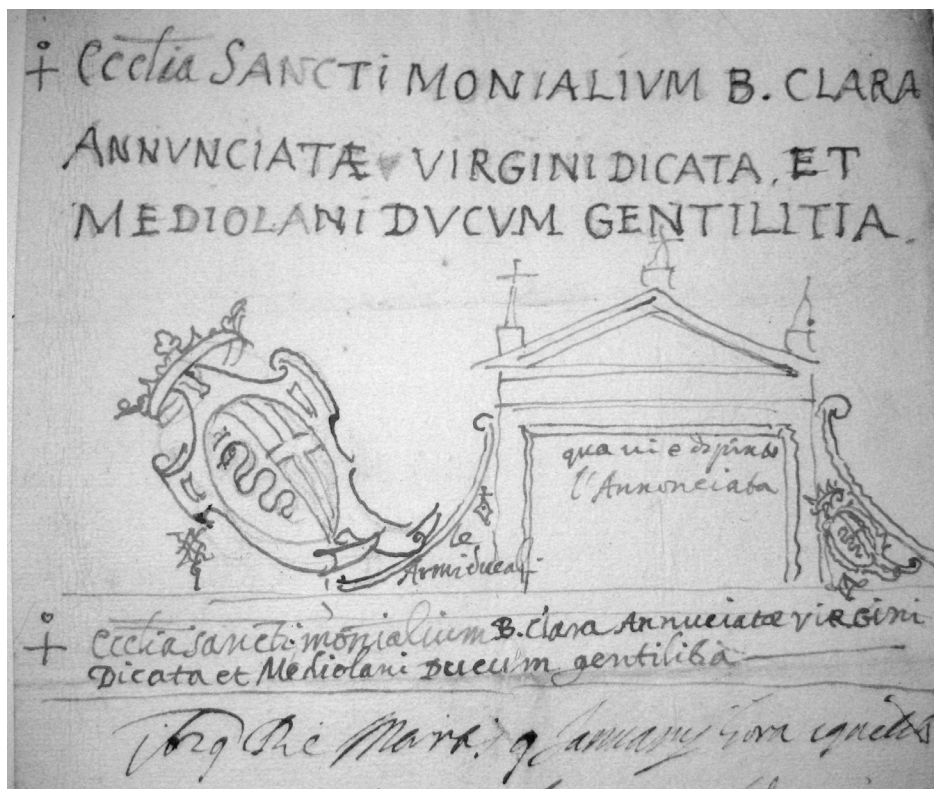 Ecclia SANCTI MONIALIVM B. CLARA
ANNVNCIATÆ VIRGINI DICATA, ET
MEDIOLANI DVCVM GENTILITIA.
qua vi e
l'Annonciata
le
Armi ducali
Ecclia sancti monialium B. Clara Annuciatæ virgini
Dicata et Mediolani Ducum gentilitia
Die January hora